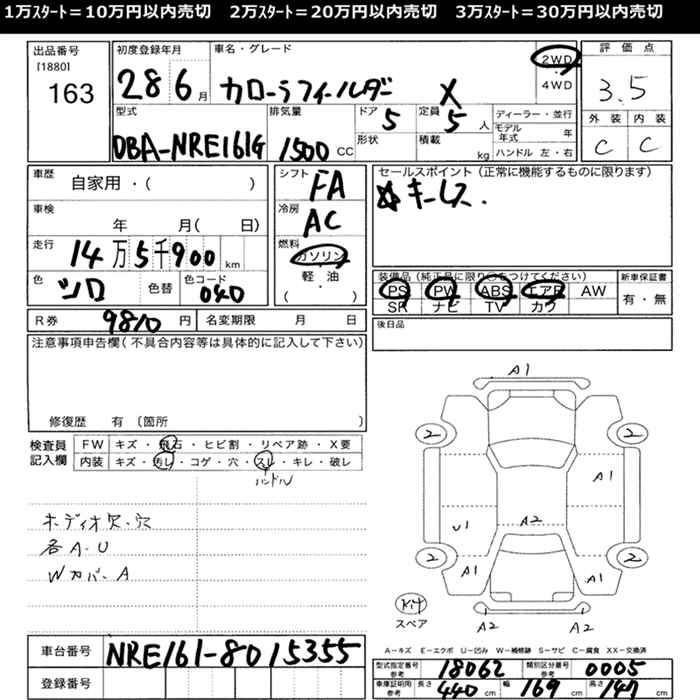 1万ｽﾀｰﾄ＝10万円以内売切　2万ｽﾀｰﾄ＝20万円以内売切　3万ｽﾀｰﾄ＝30万円以内売切
出品番号
[1880]
163
初度登録年月
28 6 月
車名・グレード
カローラフィールダー X
2WD
・
4WD
評価点
3.5
外装 内装
C C
型式
DBA-NRE161G
排気量
1500 CC
ドア
5
形状
定員
5 人
積載
kg
ディーラー・並行
モデル年式 年
ハンドル 左・右
車歴
自家用・( )
車検
年 月( 日)
走行
14万5千900 km
色
シロ
色替
色コード
040
シフト
FA
冷房
AC
燃料
ガソリン
軽・油
( ・ )
セールスポイント(正常に機能するものに限ります)
☆キーレス.
装備品(純正品に限り○をつけてください)
PS PW ABS エアB AW
SR ナビ TV カワ
新車保証書
有・無
R券 9810 円
名変期限 月 日
後日品
注意事項申告欄(不具合内容等は具体的に記入して下さい)
修復歴 有 〔箇所 〕
検査員記入欄
FW キズ・飛石・ヒビ割・リペア跡・X要
内装 キズ・汚レ・コゲ・穴・スレ・キレ・破レ
ハンドル
オーディオ欠・穴
各A・U
Wカバー A
A1
2 2
A1
U1
A2
2 2
A1 A1
A2 A2
Kit
スペア
A－キズ E－エクボ U－凹み W－補修跡 S－サビ C－腐食 XX－交換済
車台番号 NRE161-8015355
登録番号
型式指定番号 参考 18062
類別区分番号 参考 0005
車庫証明用 参考 長さ 440 cm 幅 169 cm 高さ 147 cm